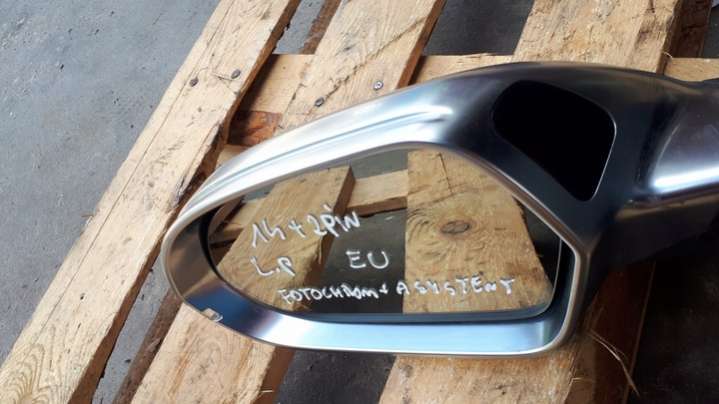 14+2PiN
L.P EU
FOTOCHROM + ASYSTENT